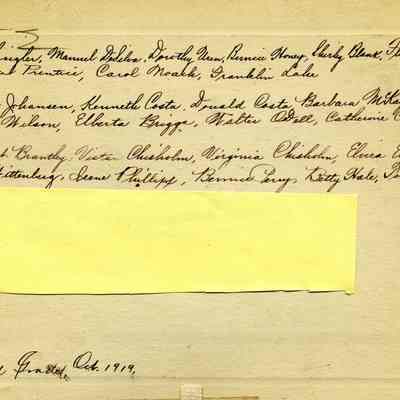 Manuel DaSilva, Dorothy Uren, Bernice Honey, Shirley Blank,
Prentice, Carol Noack, Franklin Lake
Johansen, Kenneth Costa, Donald Costa Barbara
Wilson, Elberta Briggs, Walter Odell, Catherine
Brantley, Victor Chisholm, Virginia Chisholm, Elvera
Wittenberg, Irene Phillips, Bennie Levy, Betty Hale,
Grades, Oct. 1919,